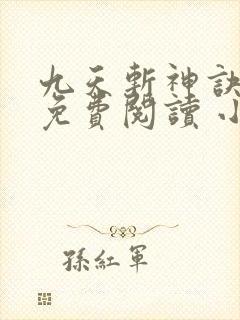 九天斬神訣
免費閱讀 小
孫紅軍